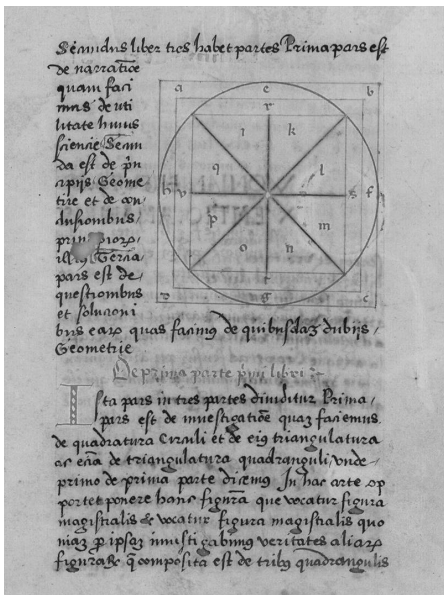 Secundus liber tres habet partes Prima pars est
de narratiõe
quam faci
mus de uti
litate huius
sciencie Secun
da est de p̃n
cipijs Geome
trie et de con
clusionibus
principiorꝝ
illius Tercia
pars est de
questionibus
et solucioni
bus earꝝ quas facimus de quibusdaz dubijs
Geometrie
a e b
r
i k
q l
h v s f
p m
o n
t
d g c
De prima parte p̃mi libri
Ista pars in tres partes diuiditur Prima
pars est de inuestigatiõe quaz faciemus
de quadratura Circuli et de eiꝰ triangulatura
ac eciã de triangulatura quadranguli vnde
primo de prima parte dicemus In hac arte op
portet ponere hanc figurã que vocatur figura
magistralis et vocatur figura magistralis quo
niaz ꝑ ipsaz inuestigabimus veritates aliarꝝ
figurarꝝ q̃ composita est de tribꝰ quadrangulis